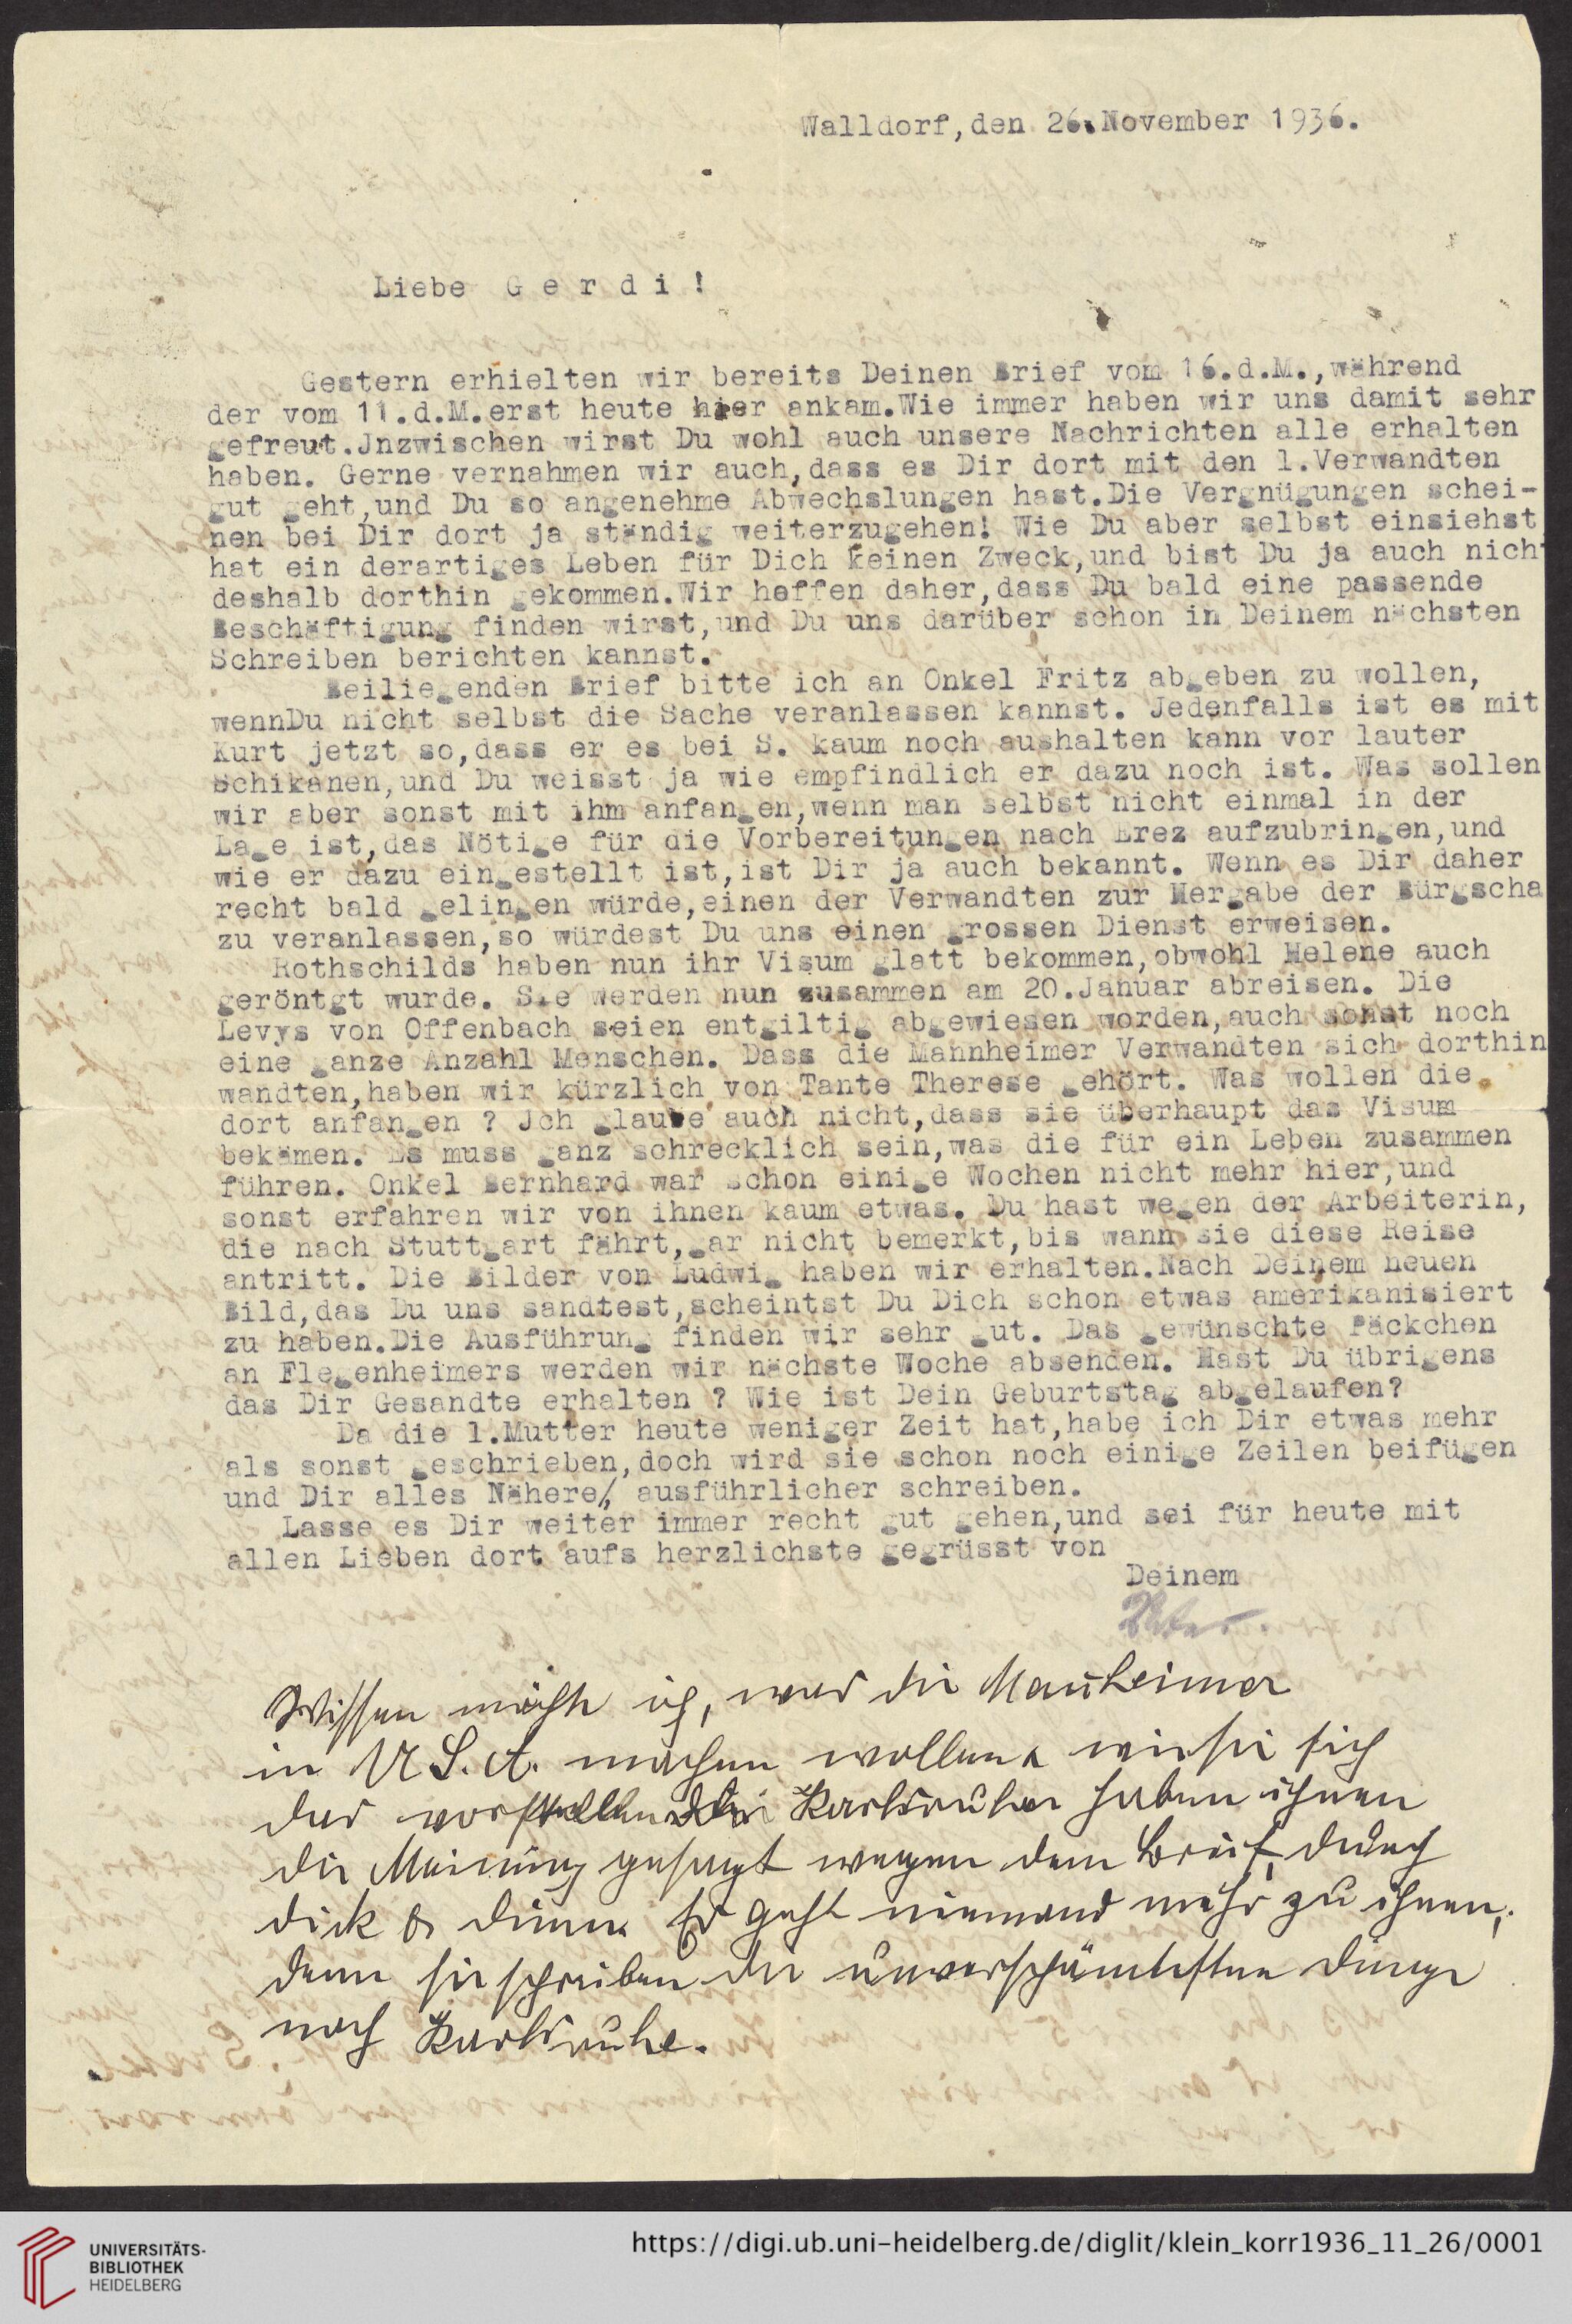 Walldorf,den 26.November 1936.
Liebe G e r d i !
Gestern erhielten wir bereits Deinen Brief vom 16.d.M.,während
der vom 11.d.M.erst heute hier ankam.Wie immer haben wir uns damit sehr
gefreut.Jnzwischen wirst Du wohl auch unsere Nachrichten alle erhalten
haben. Gerne vernahmen wir auch,dass es Dir dort mit den l.Verwandten
gut geht,und Du so angenehme Abwechslungen hast.Die Vergnügungen schei-
nen bei Dir dort ja ständig weiterzugehen! Wie Du aber selbst einsiehst
hat ein derartiges Leben für Dich keinen Zweck,und bist Du ja auch nich
deshalb dorthin gekommen.Wir hoffen daher,dass Du bald eine passende
Beschäftigung finden wirst,und Du uns darüber schon in Deinem nächsten
Schreiben berichten kannst.
Beiliegenden Brief bitte ich an Onkel Fritz abgeben zu wollen,
wennDu nicht selbst die Sache veranlassen kannst. Jedenfalls ist es mit
Kurt jetzt so,dass er es bei S. kaum noch aushalten kann vor lauter
Schikanen,und Du weisst ja wie empfindlich er dazu noch ist. Was sollen
wir aber sonst mit ihm anfangen,wenn man selbst nicht einmal in der
Lage ist,das Nötige für die Vorbereitungen nach Erez aufzubringen,und
wie er dazu eingestellt ist,ist Dir ja auch bekannt. Wenn es Dir daher
recht bald gelingen würde,einen der Verwandten zur Hergabe der Bürgscha
zu veranlassen,so würdest Du uns einen grossen Dienst erweisen.
Rothschilds haben nun ihr Visum glatt bekommen,obwohl Helene auch
geröntgt wurde. Sie werden nun zusammen am 20.Januar abreisen. Die
Levys von Offenbach seien entgiltig abgewiesen worden,auch sonst noch
eine ganze Anzahl Menschen. Dass die Mannheimer Verwandten sich dorthin
wandten,haben wir kürzlich von Tante Therese gehört. Was wollen die
dort anfangen ? Jch glaube auch nicht,dass sie überhaupt das Visum
bekämen. Es muss ganz schrecklich sein,was die für ein Leben zusammen
führen. Onkel Bernhard war schon einige Wochen nicht mehr hier,und
sonst erfahren wir von ihnen kaum etwas. Du hast wegen der Arbeiterin,
die nach Stuttgart fährt,gar nicht bemerkt,bis wann sie diese Reise
antritt. Die Bilder von Ludwig haben wir erhalten.Nach Deinem neuen
Bild,das Du uns sandtest,scheintst Du Dich schon etwas amerikanisiert
zu haben.Die Ausführung finden wir sehr gut. Das gewünschte Päckchen
an Flegenheimers werden wir nächste Woche absenden. Hast Du übrigens
das Dir Gesandte erhalten ? Wie ist Dein Geburtstag abgelaufen?
Da die l.Mutter heute weniger Zeit hat,habe ich Dir etwas mehr
als sonst geschrieben,doch wird sie schon noch einige Zeilen beifügen
und Dir alles Nähere, ausführlicher schreiben.
Lasse es Dir weiter immer recht gut gehen,und sei für heute mit
allen Lieben dort aufs herzlichste gegrüsst von
Deinem
Vater.
Wissen möchte ich, was die Manheimer
in U.S.A. machen wollen, wie sie sich
das vorstellen die Karlsruher haben ihnen
die Meinung gesagt wegen dem Brief, durch
dick & dünn. Es geht niemand mehr zu ihnen,
denn sie schreiben die unverschämtesten Dinge
nach Karlsruhe.
UNIVERSITÄTS-
BIBLIOTHEK
HEIDELBERG
https://digi.ub.uni-heidelberg.de/diglit/klein_korr1936_11_26/0001